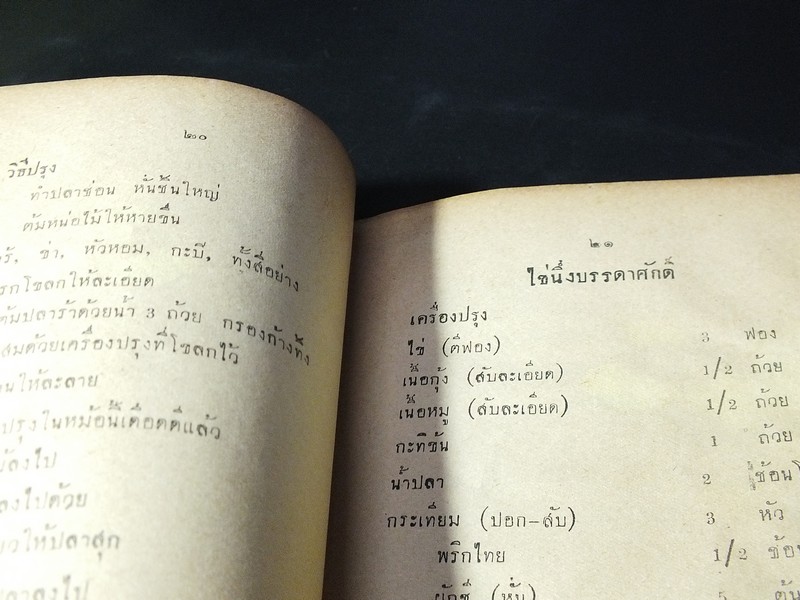 ๒๐
วิธีปรุง
ทำปลาช่อน หั่นชิ้นใหญ่
ต้มหน่อไม้ให้หายขื่น
ข่า, หัวหอม, กะปี, ทั้งสี่อย่าง
โขลกให้ละเอียด
ต้มปลาร้าด้วยน้ำ 3 ถ้วย กรองก้างทิ้ง
ด้วยเครื่องปรุงที่โขลกไว้
ให้ละลาย
ปรุงในหม้อนี้เดือดดีแล้ว
ลงไป
ลงไปด้วย
ให้ปลาสุก
ลงไป
๒๑
ไข่นึ่งบรรดาศักดิ์
เครื่องปรุง
ไข่ (ตีฟอง) 3 ฟอง
เนื้อกุ้ง (สับละเอียด) 1/2 ถ้วย
เนื้อหมู (สับละเอียด) 1/2 ถ้วย
กะทิข้น 1 ถ้วย
น้ำปลา 2 ช้อน
กระเทียม (ปอก-สับ) 3 หัว
พริกไทย 1/2 ช้อน
ผักชี (หั่น) 5 ต้น